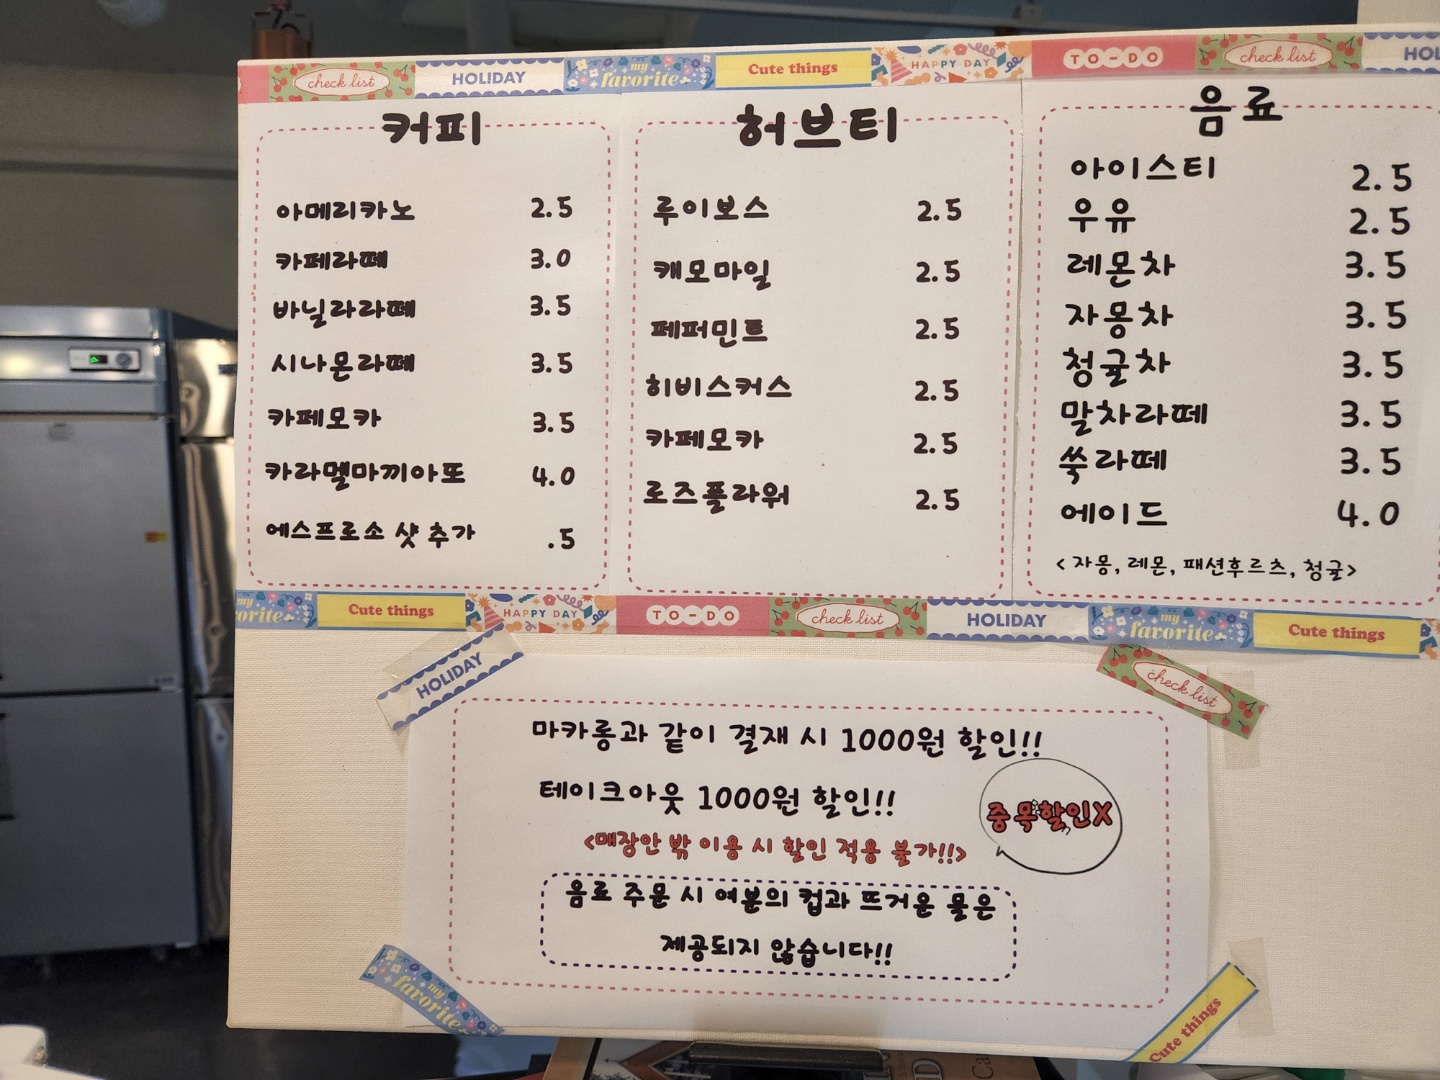 check list HOLIDAY my favorite Cute things HAPPY DAY TO-DO check list HOL
커피
아메리카노 2.5
카페라떼 3.0
바닐라라떼 3.5
시나몬라떼 3.5
카페모카 3.5
카라멜마끼아또 4.0
에스프로소 샷 추가 .5
허브티
루이보스 2.5
캐모마일 2.5
페퍼민트 2.5
히비스커스 2.5
카페모카 2.5
로즈플라워 2.5
음료
아이스티 2.5
우유 2.5
레몬차 3.5
자몽차 3.5
청귤차 3.5
말차라떼 3.5
쑥라떼 3.5
에이드 4.0
<자몽, 레몬, 패션후르츠, 청귤>
my favorite Cute things HAPPY DAY TO-DO check list HOLIDAY my favorite Cute things
HOLIDAY
check list
마카롱과 같이 결재 시 1000원 할인!!
테이크아웃 1000원 할인!!
중복할인X
<매장안 밖 이용 시 할인 적용 불가!!>
음료 주문 시 여분의 컵과 뜨거운 물은
제공되지 않습니다!!
my favorite
Cute things